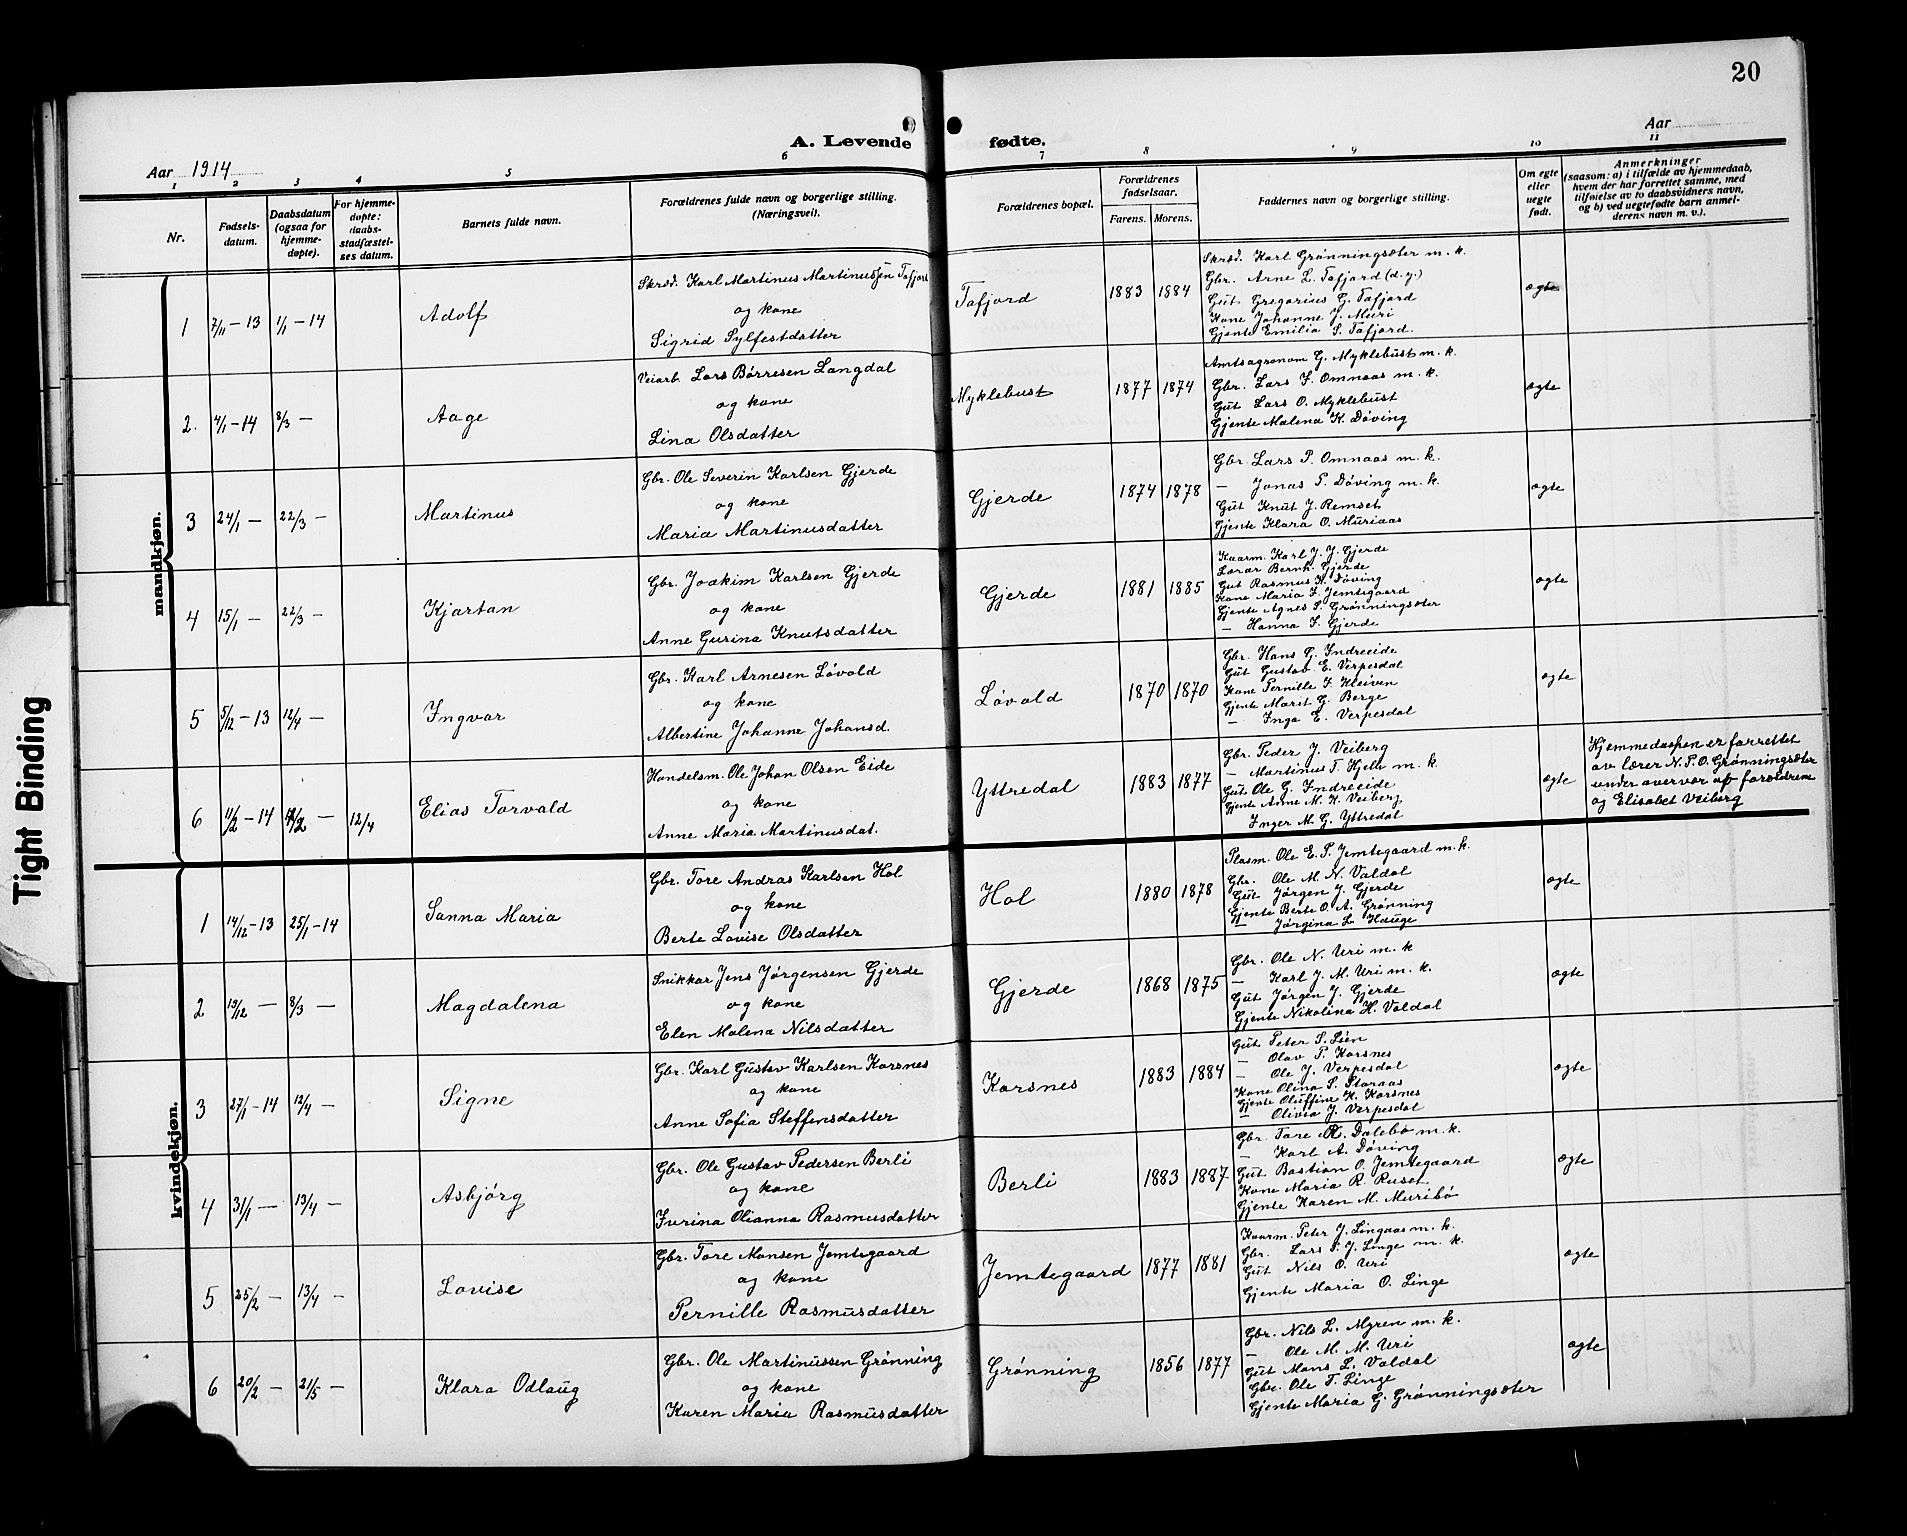 20
A. Levende fødte.
Aar 1914
Aar
1 2 3 4 5 6 7 8 9 10 11
Nr.
Fødsels-
datum.
Daabsdatum
(ogsaa for
hjemme-
døpte).
For hjemme-
døpte:
daabs-
stadfæstel-
ses datum.
Barnets fulde navn.
Forældrenes fulde navn og borgerlige stilling.
(Næringsvei).
Forældrenes bopæl.
Forældrenes
fødselsaar.
Farens. Morens.
Faddernes navn og borgerlige stilling.
Om egte
eller
uegte
født.
Anmerkninger
(saasom: a) i tilfælde av hjemmedaab,
hvem der har forrettet samme, med
tilføielse av to daabsvidners navn,
og b) ved uegtefødte barn anmel-
derens navn m. v.).
mandkjøn.
1 7/11 – 13 1/1 – 14 Adolf
Skræd. Karl Martinus Martinussen Tafjord
og kone
Sigrid Sylfestdatter
Tafjord 1883 1884
Skræd. Karl Grønningsæter m. k.
Gbr. Arne L. Tafjord (d. y.)
Gut Gregorius G. Tafjord
Kone Johanne J. Muri
Gjente Emilia S. Tafjord.
ægte
2. 4/1 – 14 8/3 – Aage
Veiarb. Lars Børresen Langdal
og kone
Lina Olsdatter
Myklebust 1877 1874
Amtsagronom G. Myklebust m. k.
Gbr. Lars J. Omnaas m. k.
Gut Lars O. Myklebust
Gjente Malena K. Døving
ægte
3 24/1 – 22/3 – Martinus
Gbr. Ole Severin Karlsen Gjerde
og kone
Maria Martinusdatter
Gjerde 1874 1878
Gbr. Lars P. Omnaas m. k.
– Jonas T. Døving m. k.
Gut Knut J. Remset
Gjente Klara O. Muriaas
ægte
4 15/1 – 22/3 – Kjartan
Gbr. Joakim Karlsen Gjerde
og kone
Anne Gurina Knutsdatter
Gjerde 1881 1885
Kaarm. Karl J. J. Gjerde
Lærar Bernh. Gjerde
Gut Rasmus K. Døving
Kone Maria J. Jemtegaard
Gjente Agnes S. Grønningsæter
– Hanna J. Gjerde
ægte
5 5/12 – 13 12/4 – Ingvar
Gbr. Karl Arnesen Løvold
og kone
Albertine Johanne Johansd.
Løvold 1870 1870
Gbr. Hans G. Indreeide
Gut Gustav E. Verpesdal
Kone Pernille J. Kleiven
Gjente Marit G. Berge
– Inga E. Verpesdal
ægte
6 11/2 – 14 12/2 – 12/4 Elias Torvald
Handelsm. Ole Johan Olsen Eide
og kone
Anne Maria Martinusdat.
Yttredal 1883 1877
Gbr. Peder J. Veiberg
– Martinus T. Hjelle m. k.
Gut Ole G. Indreeide
Gjente Anne M. K. Veiberg
Inger M. G. Yttredal
ægte
Hjemmedaapen er forrettet
av lærer N. P. O. Grønningsæter
under overvær af forældrene
og Elisabet Veiberg
kvindekjøn.
1 14/12 – 13 25/1 – 14 Sanna Maria
Gbr. Tore Andras Karlsen Hol
og kone
Berte Lovise Olsdatter
Hol 1880 1878
Plasm. Ole E. P. Jemtegaard m. k.
Gbr. Ole M. N. Valdal
Gut Jørgen J. Gjerde
Gjente Berte O. A. Grønning
– Jørgina L. Hauge
ægte
2 19/12 – 8/3 – Magdalena
Snikkar Jens Jørgensen Gjerde
og kone
Elen Malena Nilsdatter
Gjerde 1868 1875
Gbr. Ole N. Uri m. k
– Karl J. M. Uri m. k.
Gut Jørgen J. Gjerde
Gjente Nikolina H. Valdal
ægte
3 27/1 – 14 12/4 – Signe
Gbr. Karl Gustav Karlsen Korsnes
og kone
Anne Sofia Steffensdatter
Korsnes 1883 1884
Gut Peter S. Lien
– Olav P. Korsnes
– Ole J. Verpesdal
Kone Olina S. Storaas
Gjente Oluffine K. Korsnes
– Olivia J. Verpesdal
ægte
4 31/1 – 13/4 – Asbjørg
Gbr. Ole Gustav Pedersen Berli
og kone
Iverina Olianna Rasmusdatter
Berli 1883 1887
Gbr. Tore R. Dalebø m. k.
– Karl A. Døving
Gut Bastian O. Jemtegaard
Kone Maria R. Ruset
Gjente Karen M. Muribø
ægte
5 25/2 – 13/4 – Lovise
Gbr. Tore Monsen Jemtegaard
og kone
Pernille Rasmusdatter
Jemtegaard 1877 1881
Kaarm. Peter J. Lingaas m. k.
Gbr. Lars P. J. Linge m. k.
Gut Nils O. Uri
Gjente Maria O. Linge
ægte
6 20/2 – 21/5 – Klara Odlaug
Gbr. Ole Martinussen Grønning
og kone
Karen Maria Rasmusdatter
Grønning 1856 1877
Gbr. Nils L. Myren m. k.
– Ole M. M. Uri
Gut Mons L. Valdal
Gbr. Ole T. Linge
Gjente Maria G. Grønningsæter
ægte
Tight Binding